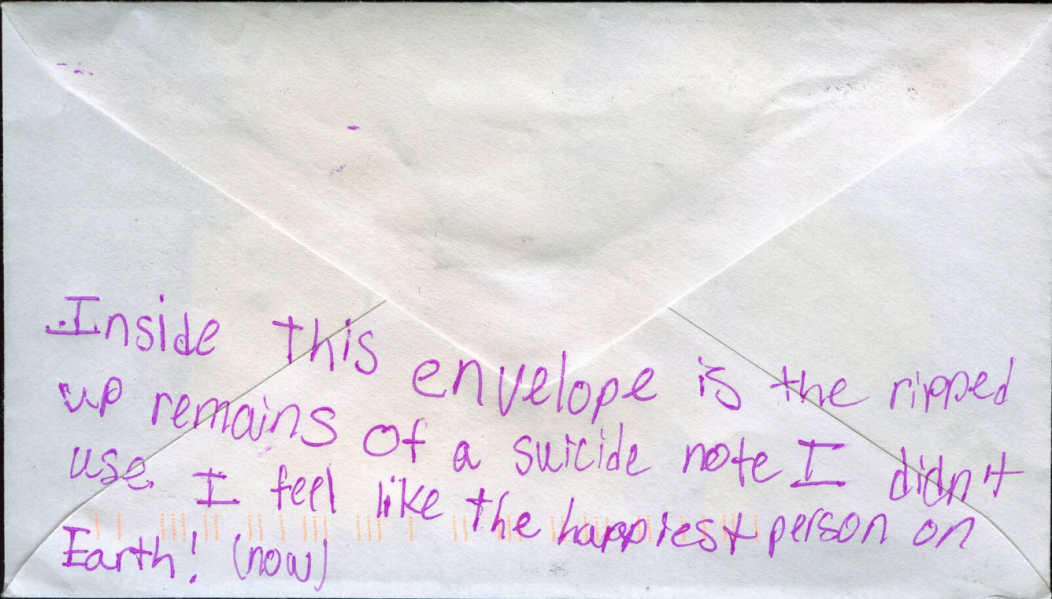 Inside this envelope is the ripped
up remains of a suicide note I didn't
use. I feel like the happiest person on
Earth! (now)